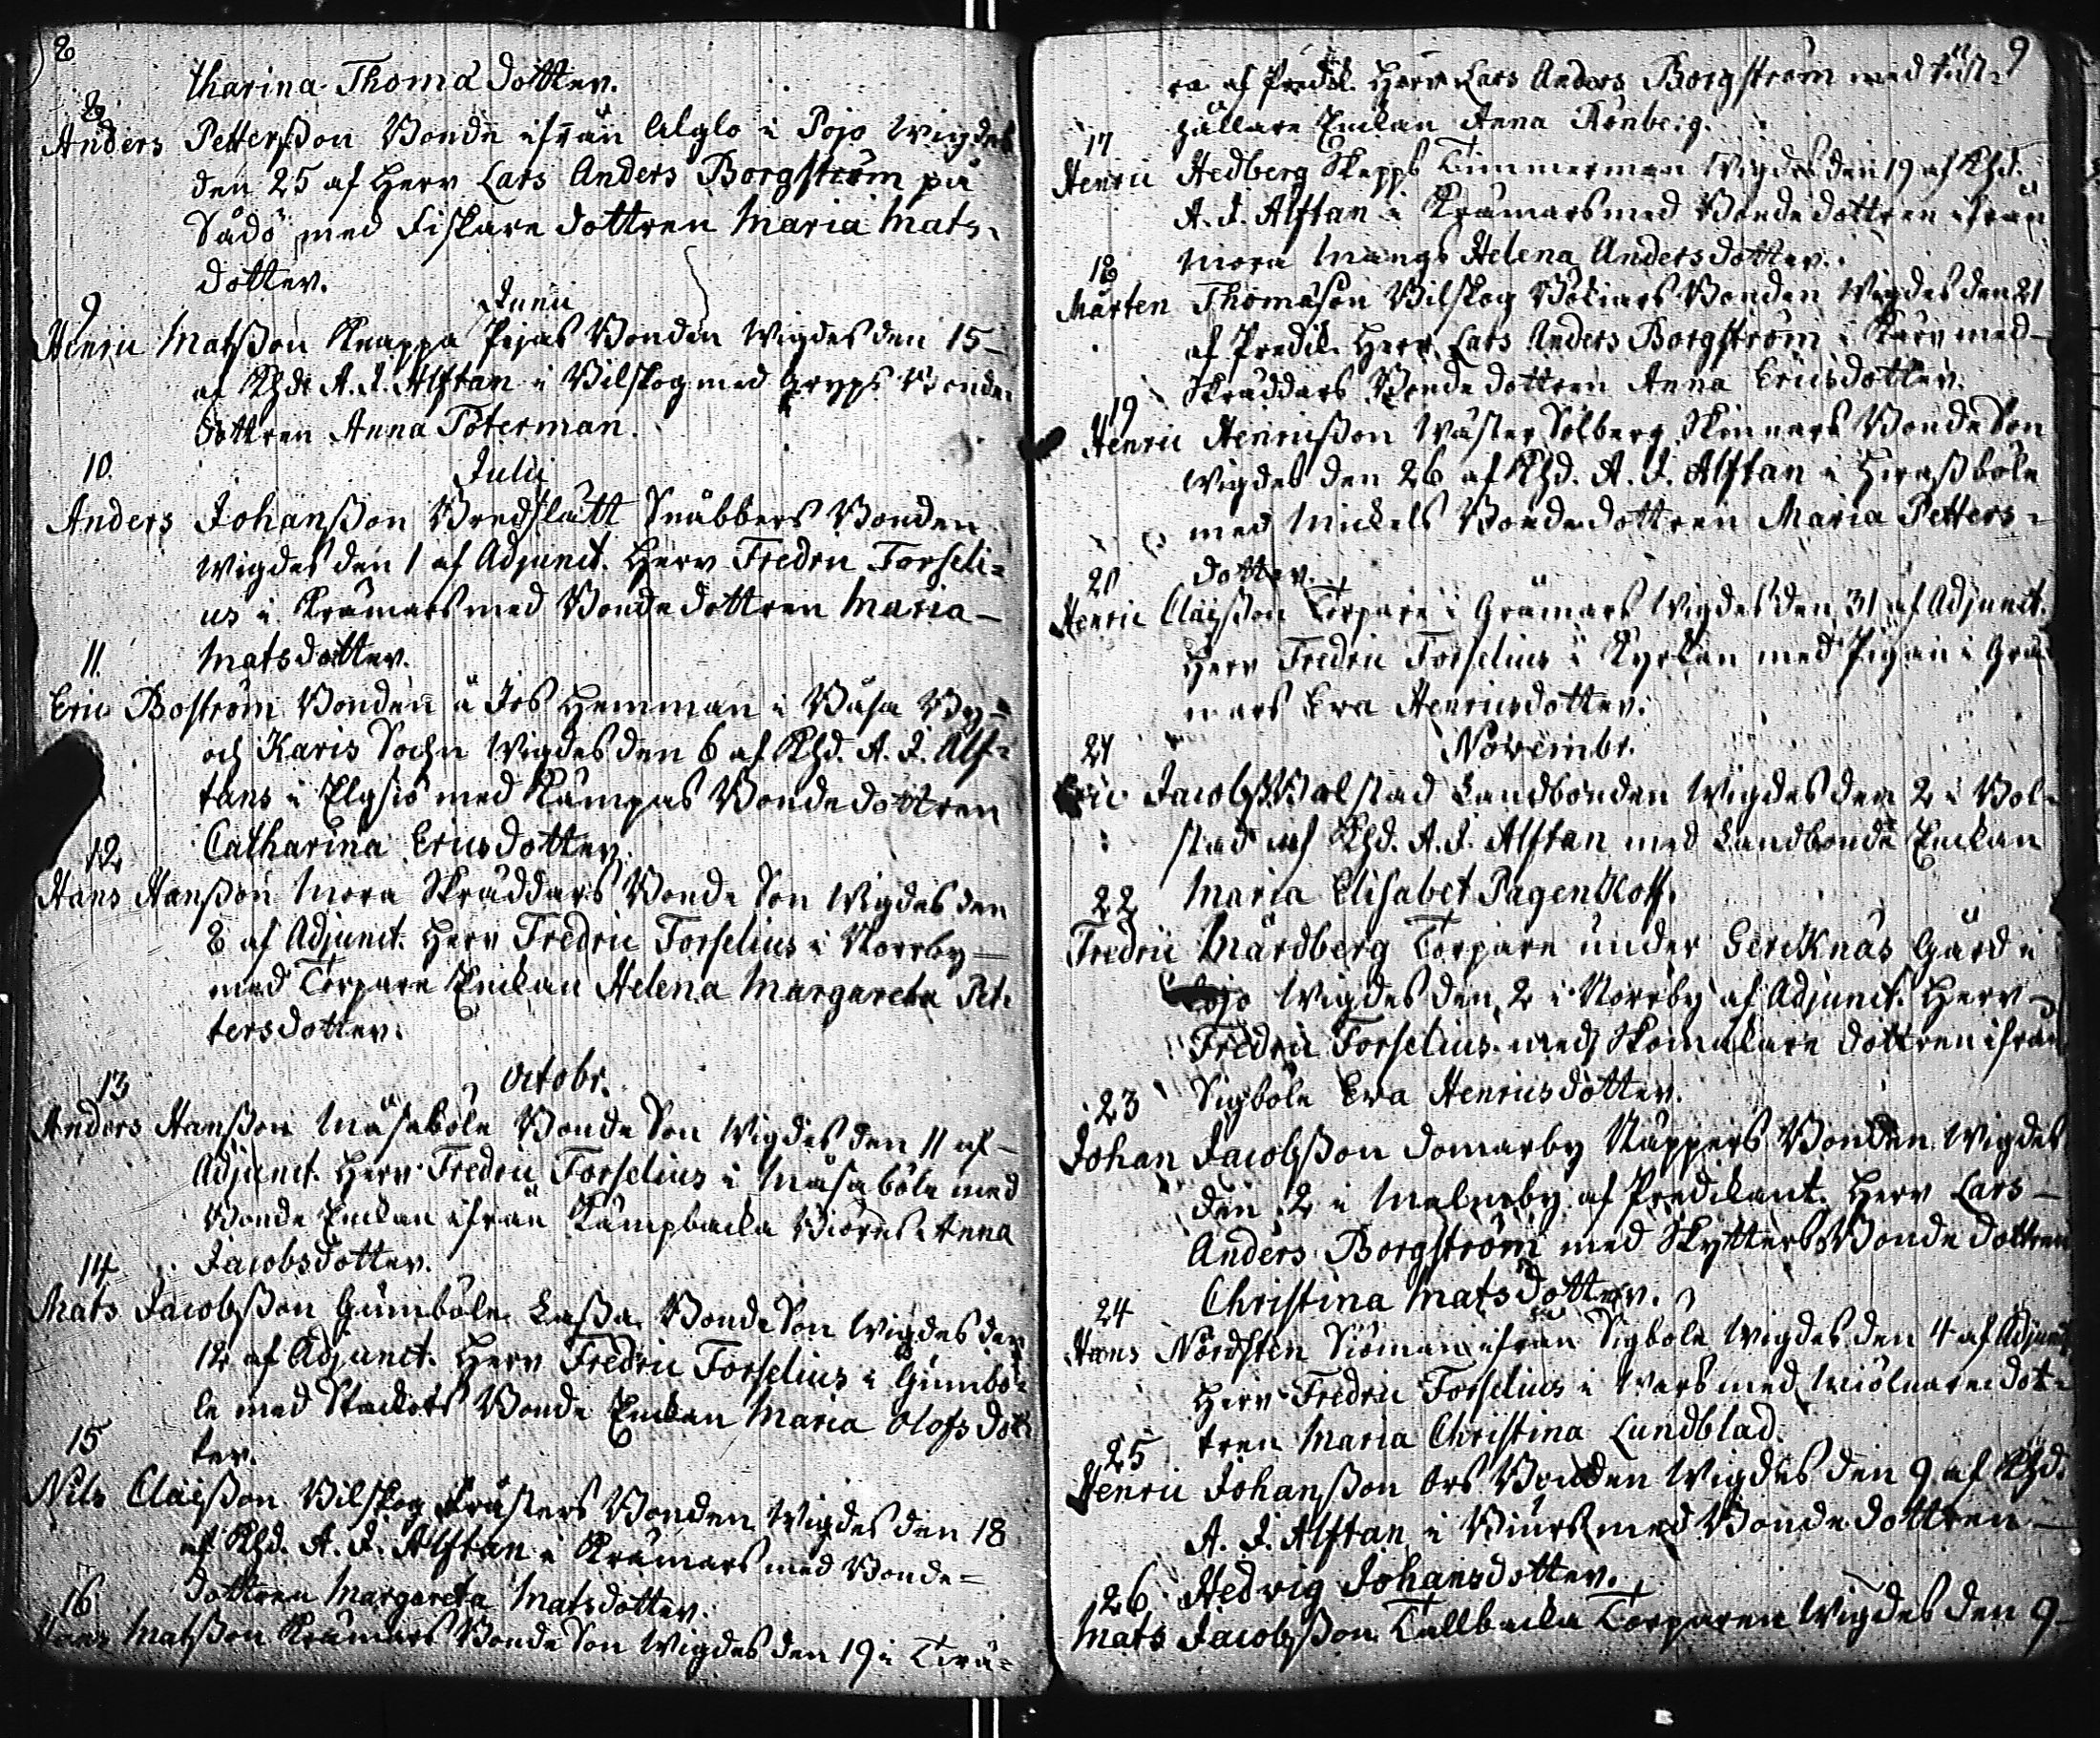 8
tharina Thomædotter.
8
Anders Pettersson Bonde ifrån Alglo i Pojo Wigdes
den 25 af Herr Lars Anders Borgström på
Sådö med Fiskare dottren Maria Mats-
dotter.
Junii
9
Henric Matsson Knappa Pijas Bonden Wigdes den 15
af Khd. A. J. Alftan i Bilskog med Gryps Bonde
dottren Anna Töterman.
10.
Julii
Anders Johansson Bredslätt Snäbbers Bonden
Wigdes den 1 af Adjunct. Herr Fredric Forseli=
us i Krämars med Bonde dottren Maria
Matsdotter.
11.
Eric Boström Bonden å Jos Hemman i Båsa By
och Karis Sochn Wigdes den 6 af Khd. A. J. Alf-
tans i Elgsiö med Kämpas Bondedottren
Catharina Ericsdotter.
12
Hans Hansson Mora Skräddars Bonde Son Wigdes den
8 af Adjunct. Herr Fredric Forselius i Norrby
med Torpare Enckan Helena Margareta Pet-
tersdotter.
Octobr.
13
Anders Hansson Måsaböle Bonde Son Wigdes den 11 af
Adjunct. Herr Fredric Forselius i Måsaböle med
Bonde Enckan ifrån Kämpbacka Biörns Anna
Jacobsdotter.
14
Mats Jacobsson Gumböle Lassa Bonde Son Wigdes den
12 af Adjunct. Herr Fredric Forselius i Gumbö-
le med Stackars Bonde Enckan Maria Olofs dot-
ter.
15
Nils Claësson Bilskog Fräsers Bonden Wigdes den 18
af Khd. A. J. Alftan i Krämars med Bonde=
dottren Margareta Matsdotter.
16
Hans Matsson Krämars Bonde Son Wigdes den 19 i
9
ra af Predik. Herr Lars Anders Borgström med
hållare Enckan Anna Rönberg.
17
Henric Hedberg Skepps Timmerman Wigdes den 19 af Khd.
A. J. Alftan i Krämars med Bonde dottren ifrån
Mora Mangs Helena Andersdotter.
18
Mårten Thomasson Bilskog Bökars Bonden Wigdes den 21
af Predik. Herr Lars Anders Borgström i Kärv med
Skräddars Bonde dottren Anna Ericsdotter.
19
Henric Henricsson Wäster Solberg Skinnars Bonde Son
Wigdes den 26 af Khd. A. J. Alftan i Hirassböle
med Mickels Bondedottren Maria Petters=
dotter.
20
Henric Claësson Torpare i Grämars Wigdes den 31 af Adjunct.
Herr Fredric Forselius i Kyrkan med Pigan i Grä-
mars Ewa Henricsdotter.
21
Novembr.
Eric Jacobs. Bolstad Landbonden Wigdes den 2 i Bol-
stad af Khd. A. J. Alftan med Landbonde Enckan
Maria Elisabet Pagenkloff.
22
Fredric Mårdberg Torpare under Gerknäs Gård i
Lojo Wigdes den 2 i Norrby af Adjunct. Herr
Fredric Forselius med Skomakare dottren ifrån
Sigböle Ewa Henricsdotter.
23
Johan Jacobsson Domarby Näppers Bonden Wigdes
den 2 i Malmby af Predikant. Herr Lars
Anders Borgström med Skytters Bonde dottren
Christina Matsdotter.
24
Hans Nordsten Siöman ifrån Sigbole Wigdes den 4 af Adjunct.
Herr Fredric Forselius i Wars med Miölnare dot-
tren Maria Christina Lundblad.
25
Henric Johansson Ors Bonden Wigdes den 9 af Khd.
A. J. Alftan i Biurs med Bondedottren
Hedvig Johansdotter.
26
Mats Jacobsson Tallbacka Torparen Wigdes den 9